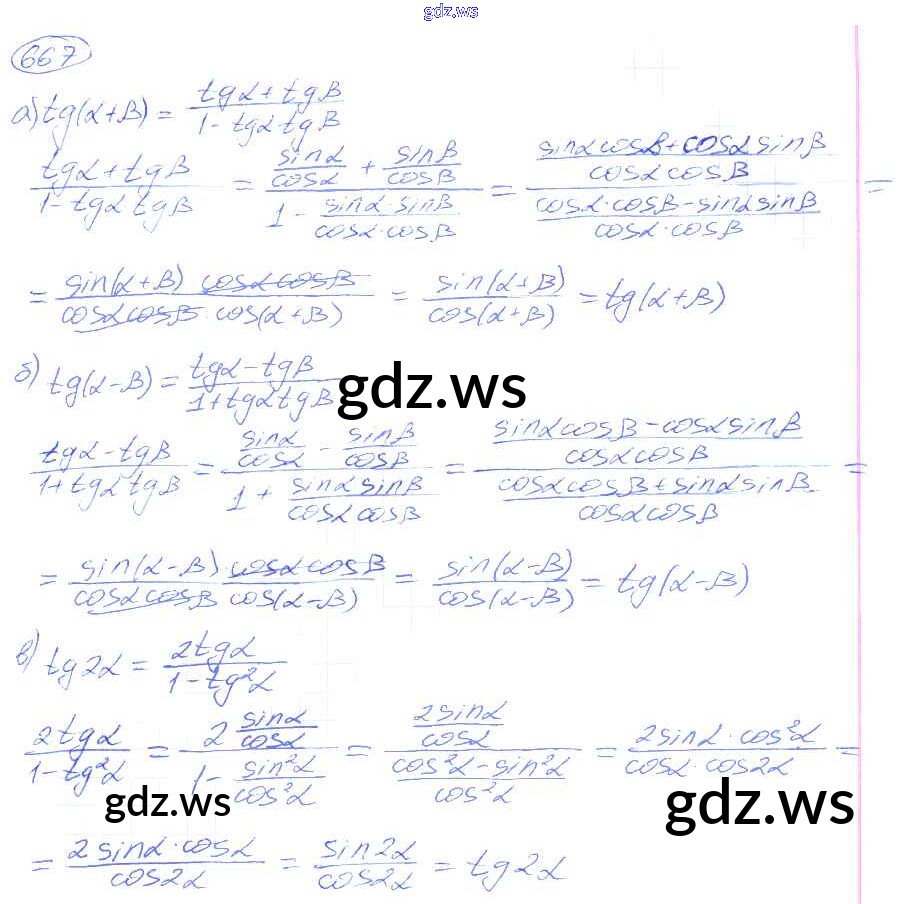 gdz.ws
667
а) tg(α+β) = (tgα + tgβ)/(1 - tgα tgβ)
(tgα + tgβ)/(1 - tgα tgβ) = (sinα/cosα + sinβ/cosβ)/(1 - (sinα·sinβ)/(cosα·cosβ)) = ((sinα cosβ + cosα sinβ)/(cosα cosβ))/((cosα·cosβ - sinα sinβ)/(cosα·cosβ)) =
= (sin(α+β) cosα cosβ)/(cosα cosβ · cos(α+β)) = sin(α+β)/cos(α+β) = tg(α+β)
б) tg(α-β) = (tgα - tgβ)/(1 + tgα tgβ)
gdz.ws
(tgα - tgβ)/(1 + tgα tgβ) = (sinα/cosα - sinβ/cosβ)/(1 + (sinα sinβ)/(cosα cosβ)) = ((sinα cosβ - cosα sinβ)/(cosα cosβ))/((cosα cosβ + sinα sinβ)/(cosα cosβ)) =
= (sin(α-β)·cosα cosβ)/(cosα cosβ cos(α-β)) = sin(α-β)/cos(α-β) = tg(α-β)
в) tg2α = 2tgα/(1 - tg²α)
2tgα/(1 - tg²α) = (2 sinα/cosα)/(1 - sin²α/cos²α) = (2sinα/cosα)/((cos²α - sin²α)/cos²α) = (2sinα·cos²α)/(cosα·cos2α) =
gdz.ws
gdz.ws
= (2sinα·cosα)/cos2α = sin2α/cos2α = tg2α